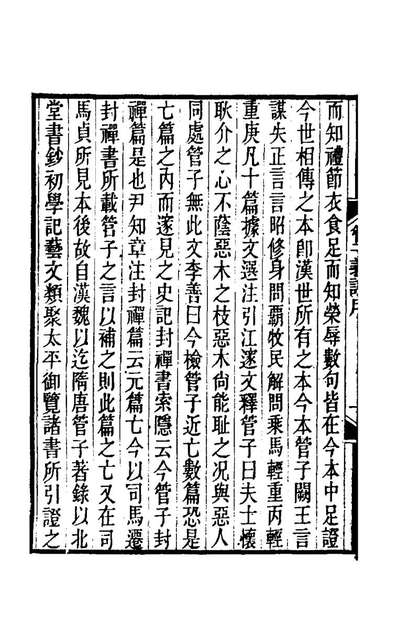 而知禮節衣食足而知榮辱數句皆在今本中足證
今世相傳之本卽漢世所有之本今本管子闕王言
謀失正言言昭修身問霸牧民解問乘馬輕重丙輕
重庚凡十篇據文選注引江邃文釋管子曰夫士懷
耿介之心不蔭惡木之枝惡木尙能耻之况與惡人
同處管子無此文李善曰今檢管子近亡數篇恐是
亡篇之内而邃見之史記封禪書索隱云今管子封
禪篇是也尹知章注封禪篇云元篇亡今以司馬遷
封禪書所載管子之言以補之則此篇之亡又在司
馬貞所見本後故自漢魏以迄隋唐管子著錄以北
堂書鈔初學記藝文類聚太平御覽諸書所引證之